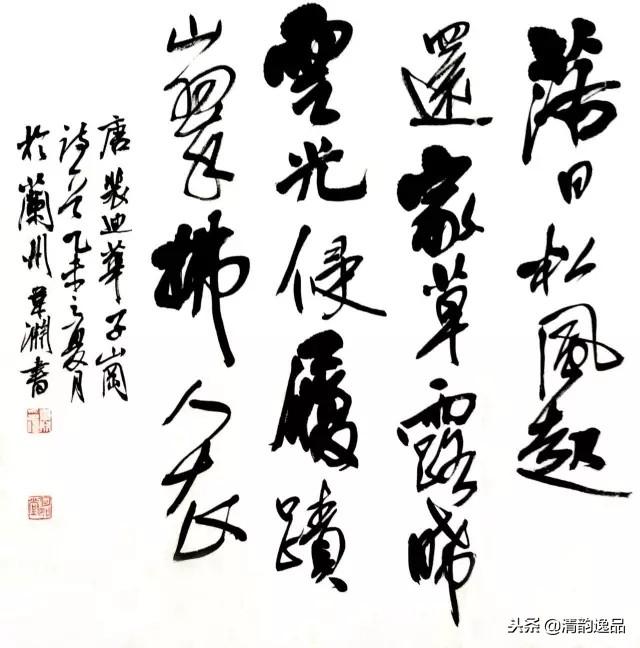 落日松風起
還家草露晞
雲光侵履蹟
山翠拂人衣
唐裴迪華子崗
詩一首乙未之夏月
於蘭州書
头条 @清韵逸品